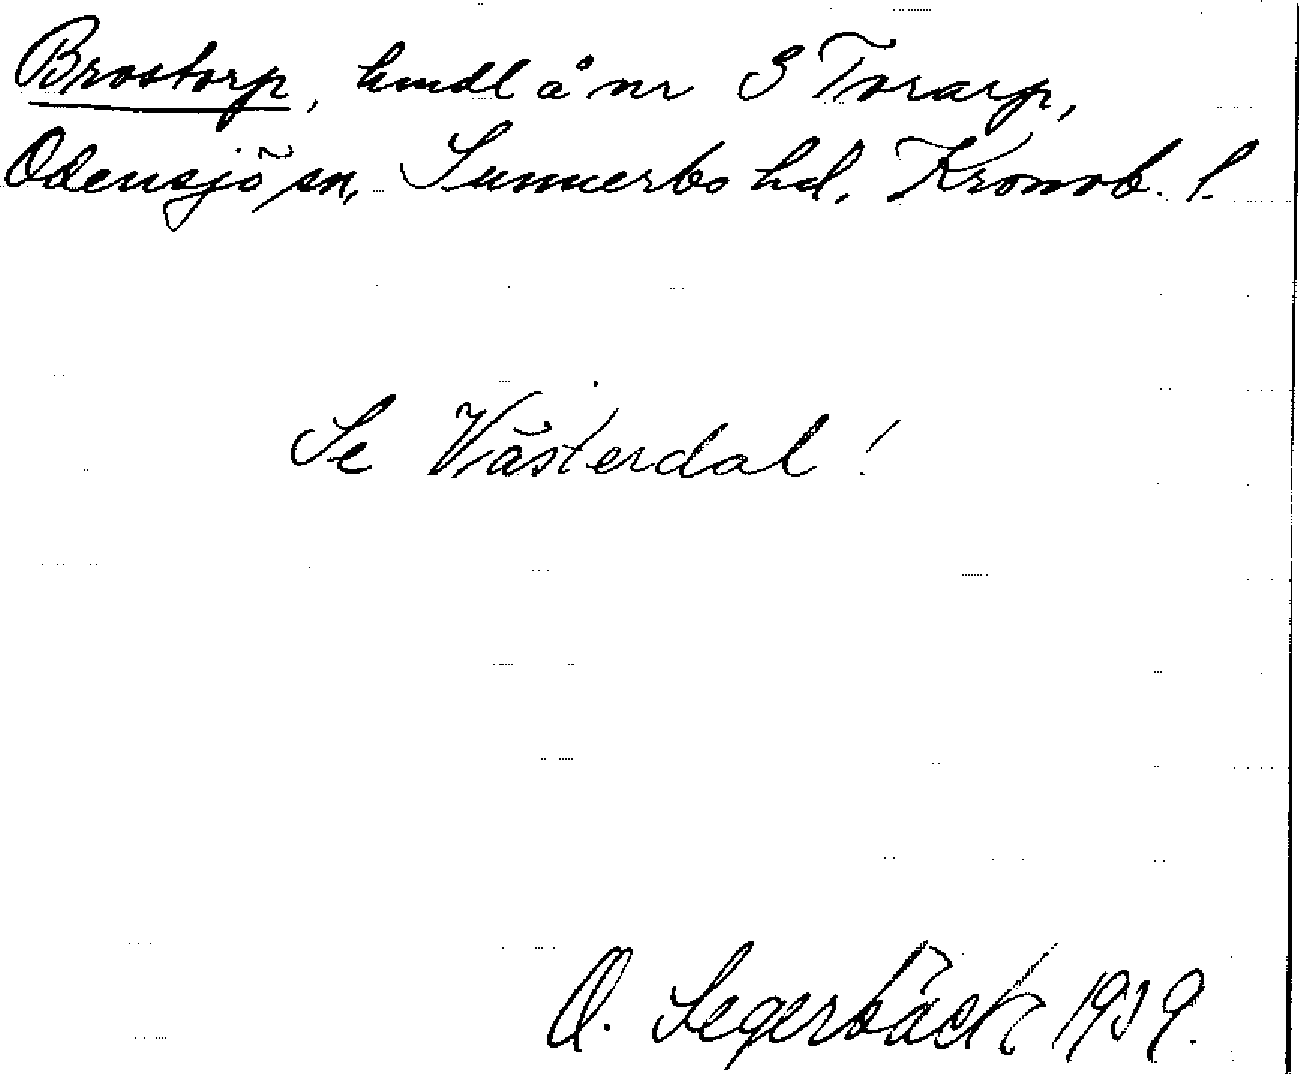 Brostorp, hmdl å nr 3 Torarp,
Odensjö sn, Sunnerbo hd. Kronob. l.
Se Västerdal!
O. Segerbäck 1939.